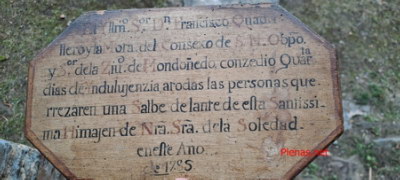 El Illmo. Sor. Dn. Francisco Quadri
llero y Mota. del Consexo de S. M. Obpo.
y Sor. de la Ziud. de Mondoñedo, conzedio Quarta
dias de Indulujenzia atodas las personas que
rrezaren una Salbe de lante de esta Santissi
ma Himajen de Nra. Sra. de la Soledad
en este Ano
1785
Pienas.net